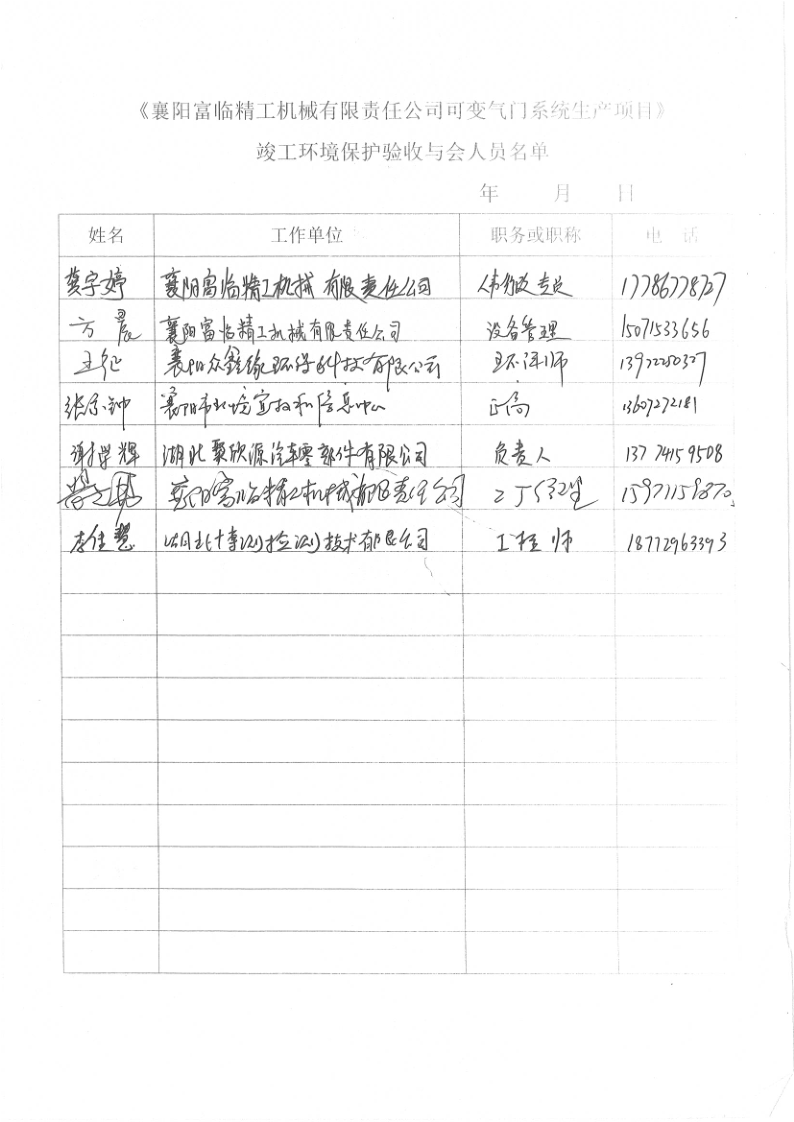 《襄阳富临精工机械有限责任公司可变气门系统生产项目》
竣工环境保护验收与会人员名单
年 月 日
姓名 工作单位 职务或职称 电 话
龚宇婷 襄阳富临精工机械有限责任公司 专员 17786778727
方晨 襄阳富临精工机械有限责任公司 设备管理 15071533656
王征 襄阳众鑫缘环保科技有限公司 环评师
张 钟 襄阳市环境宣教和信息中心 正高 13607272181
谢学辉 湖北聚欣源汽车零部件有限公司 负责人 13774159508
襄阳富临精工机械有限责任公司
李佳慧 湖北博测检测技术有限公司 工程师 18772963393